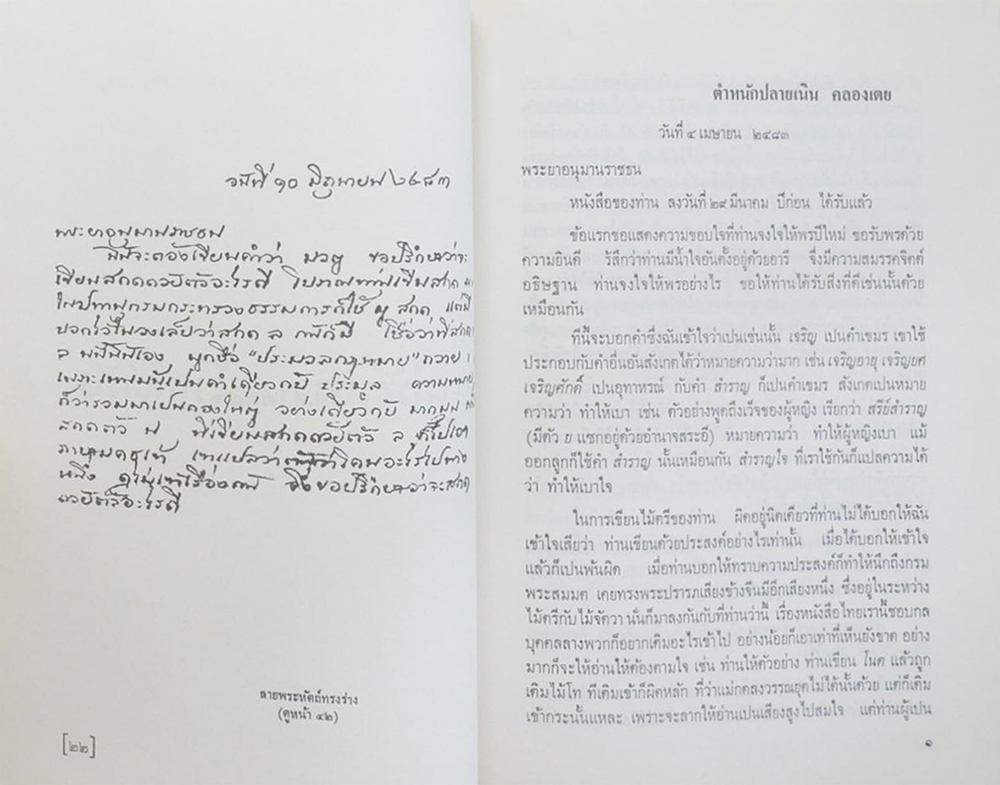 วันที่ ๑๐ มิถุนายน ๒๔๘๓
พระยาอนุมานราชธน
มีที่จะต้องเขียนคำว่า มวญ ขอปรึกษาว่าจะ
เขียนสกดดวยตัวอะไรดี โบราณท่านเขียนสกด
ในปทานุกรมกระทรวงธรรมการก็ใช้ สกด แต่มี
บอกไว้ในวงเล็บว่าสกด ล ก็มี
ล ชื่อ "ประมวลกฎหมาย" ถวาย
เพราะ เปนคำเดียวกับ ประมูล ความหมาย
ก็ว่ารวมมาเปนกองใหญ่ อย่างเดียวกับ
สกดตัว ที่เขียนสกดดวยตัว ล
ภาษามคธแท้ แปลว่า อะไรไปทาง
หนึ่ง ไม่เข้าเรื่องกัน จึงขอปรึกษาว่าจะสกด
ดวยตัวอะไรดี
ลายพระหัตถ์ทรงร่าง
(ดูหน้า ๔๒)
[๒๒]
ตำหนักปลายเนิน คลองเตย
วันที่ ๔ เมษายน ๒๔๘๓
พระยาอนุมานราชธน
หนังสือของท่าน ลงวันที่ ๒๙ มีนาคม ปีก่อน ได้รับแล้ว
ข้อแรกขอแสดงความขอบใจที่ท่านจงใจให้พรปีใหม่ ขอรับพรด้วย
ความยินดี รู้สึกว่าท่านมีน้ำใจอันตั้งอยู่ด้วยอารี จึ่งมีความสมรรคจิตต์
อธิษฐาน ท่านจงใจให้พรอย่างไร ขอให้ท่านได้รับสิ่งที่ดีเช่นนั้นด้วย
เหมือนกัน
ทีนี้จะบอกคำซึ่งฉันเข้าใจว่าเปนเช่นนั้น เจริญ เปนคำเขมร เขาใช้
ประกอบกับคำอื่นอันสังเกตได้ว่าหมายความว่ามาก เช่น เจริญอายุ เจริญยศ
เจริญศักดิ์ เปนอุทาหรณ์ กับคำ สำราญ ก็เปนคำเขมร สังเกตเปนหมาย
ความว่า ทำให้เบา เช่น ตัวอย่างพูดถึงเว็จของผู้หญิง เรียกว่า สรีย์สำราญ
(มีตัว ย แซกอยู่ด้วยอำนาจสระอี) หมายความว่า ทำให้ผู้หญิงเบา แม้
ออกลูกก็ใช้คำ สำราญ นั้นเหมือนกัน สำราญใจ ที่เราใช้กันก็แปลความได้
ว่า ทำให้เบาใจ
ในการเขียนไม้ตรีของท่าน ผิดอยู่นิดเดียวที่ท่านไม่ได้บอกให้ฉัน
เข้าใจเสียว่า ท่านเขียนด้วยประสงค์อย่างไรเท่านั้น เมื่อได้บอกให้เข้าใจ
แล้วก็เปนพ้นผิด เมื่อท่านบอกให้ทราบความประสงค์ก็ทำให้นึกถึงกรม
พระสมมต เคยทรงพระปรารภเสียงข้างจีนมีอีกเสียงหนึ่ง ซึ่งอยู่ในระหว่าง
ไม้ตรีกับไม้จัตวา นั่นก็มาลงกันกับที่ท่านว่านี้ เรื่องหนังสือไทยเรานี้ชอบกล
บุคคลลางพวกก็อยากเติมอะไรเข้าไป อย่างน้อยก็เอาเท่าที่เห็นยังขาด อย่าง
มากก็จะให้อ่านให้ต้องตามใจ เช่น ท่านให้ตัวอย่าง ท่านเขียน โนต แล้วถูก
เติมไม้โท ทีเติมเข้าก็ผิดหลัก ที่ว่าแม่กดลงวรรณยุตไม่ได้นั้นด้วย แต่ก็เติม
เข้ากระนั้นแหละ เพราะจะลากให้อ่านเปนเสียงสูงไปสมใจ แต่ท่านผู้เปน
๑